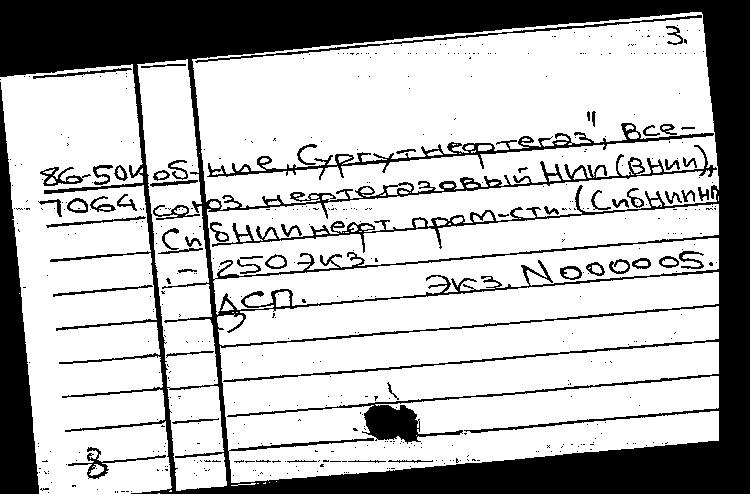 3.
86-50к об-ние „Сургутнефтегаз", Все-
7064 союз. нефтегазовый НИИ (ВНИИ),
СибНИИ нефт. пром-сти (СибНИИНП
.- 250 экз.
ДСП. Экз. N000005.
8